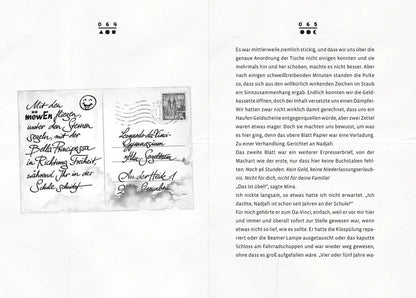 064
Mit den
möwEn fliegen,
unter den Sternen
segeln, mit der
Bella Principessa
in Richtung Freiheit,
während Ihr in der
Schule schwitzt
Leonardo-da-Vinci-
Gymnasium
Alte
An der Heide 1
065
Es war mittlerweile ziemlich stickig, und dass wir uns über die
genaue Anordnung der Tische nicht einigen konnten und sie
mehrmals hin und her schoben, machte es nicht besser. Aber
nach einigen schweißtreibenden Minuten standen die Pulte
so, dass sich aus den willkürlich wirkenden Zeichen im Staub
ein Sinnzusammenhang ergab. Endlich konnten wir die Geld-
kassette öffnen, doch der Inhalt versetzte uns einen Dämpfer.
Wir hatten nicht wirklich damit gerechnet, dass uns ein
Haufen Geldscheine entgegenquellen würde, aber zwei Zettel
waren etwas mager. Doch sie machten uns bewusst, um was
es hier ging, denn das obere Blatt Papier war eine Vorladung.
Zu einer Verhandlung. Gerichtet an Nadjafi.
Das zweite Blatt war ein weiterer Erpresserbrief, von der
Machart wie der erste, nur dass hier keine Buchstaben fehl-
ten: Noch 96 Stunden. Kein Geld, keine Niederlassungserlaub-
nis. Nicht für dich, nicht für deine Familie!
„Das ist übel!“, sagte Mina.
Ich nickte langsam, so etwas hatte ich nicht erwartet. „Ich
dachte, Nadjafi ist schon seit Jahren an der Schule?“
Für mich gehörte er zum Da-Vinci, einfach, weil er vor mir hier
und immer und überall sofort zur Stelle gewesen war, wenn
etwas nicht so lief, wie es sollte. Er hatte die Klospülung repa-
riert oder die Beamer-Lampe ausgetauscht oder das kaputte
Schloss am Fahrradschuppen und war wieder weg gewesen,
ohne dass es groß aufgefallen wäre. „Vier oder fünf Jahre wa-